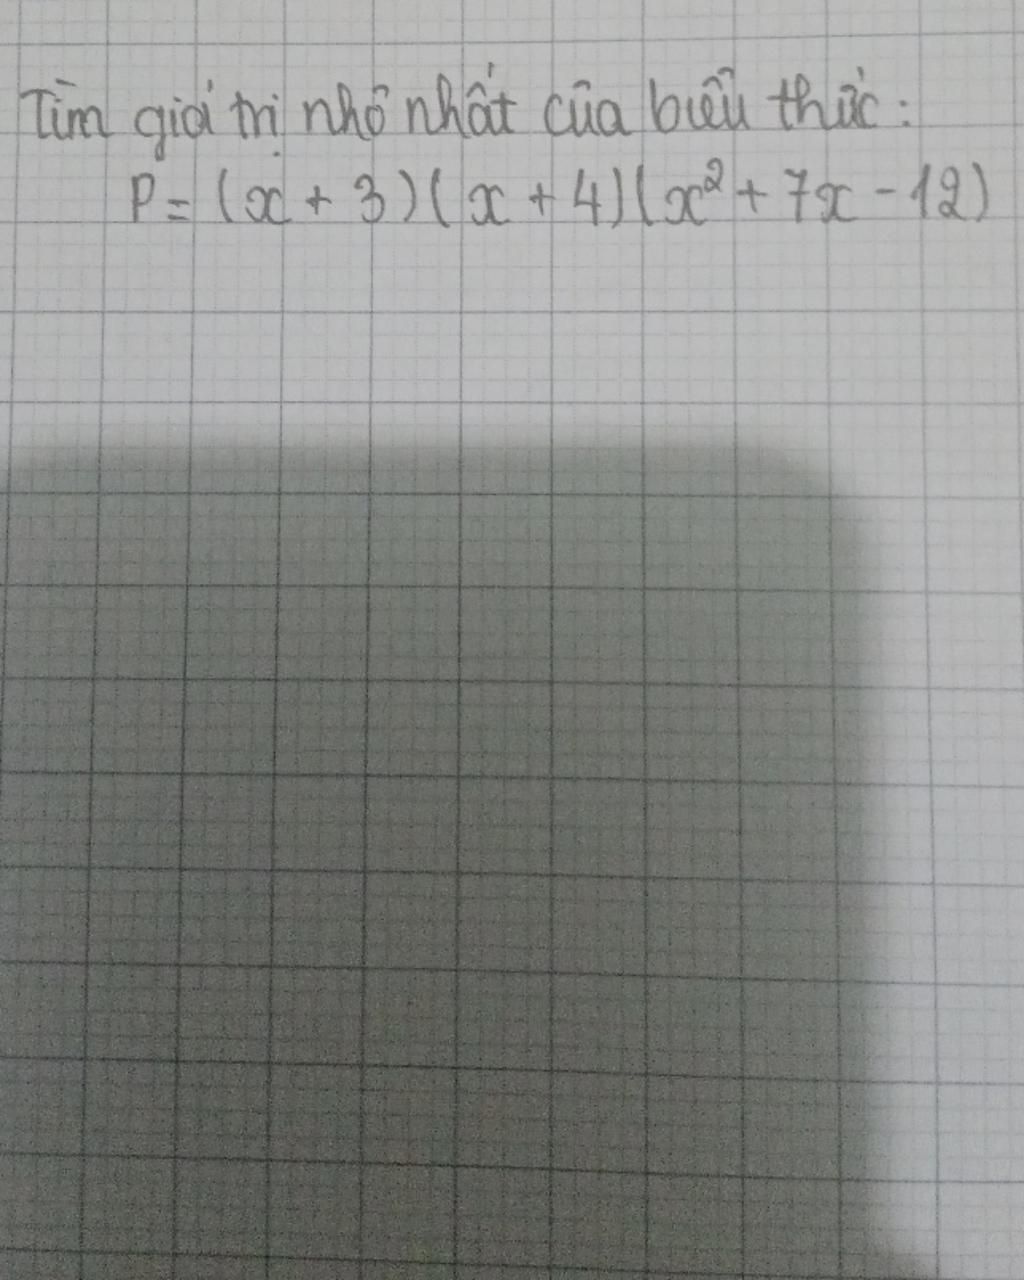 Tìm giá trị nhỏ nhất của biểu thức:
P = (x + 3)(x + 4)(x² + 7x - 12)